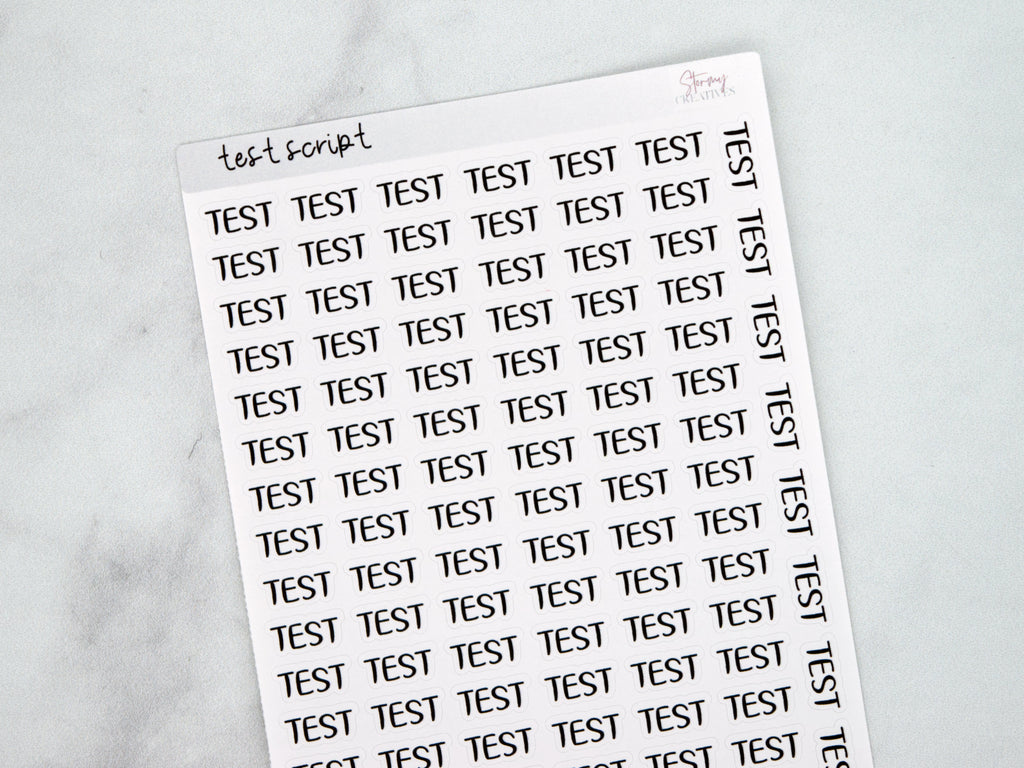 test script
Stormy
CREATIVES
TEST TEST TEST TEST TEST TEST
TEST TEST TEST TEST TEST TEST
TEST TEST TEST TEST TEST TEST
TEST TEST TEST TEST TEST TEST
TEST TEST TEST TEST TEST TEST
TEST TEST TEST TEST TEST TEST
TEST TEST TEST TEST TEST TEST
TEST TEST TEST TEST TEST TEST
TEST TEST TEST TEST TEST TEST
TEST TEST TEST TEST TEST TEST
TEST TEST TEST TEST TEST TEST
TEST TEST TEST TEST TEST TEST
TEST TEST TEST TEST TEST TEST
TEST TEST
TEST
TEST
TEST
TEST
TEST
TEST
TEST